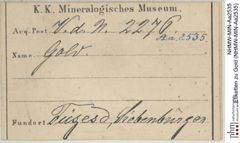 K. K. Mineralogisches Museum.
Acq. Post. V. d. N. 2276.
Aa. 2535
Name Gold.
Fundort Füzesd, Siebenbürgen.
NHMW-MIN-Aa2535
Etiketten zu Gold (NHMW-MIN-Aa2535)